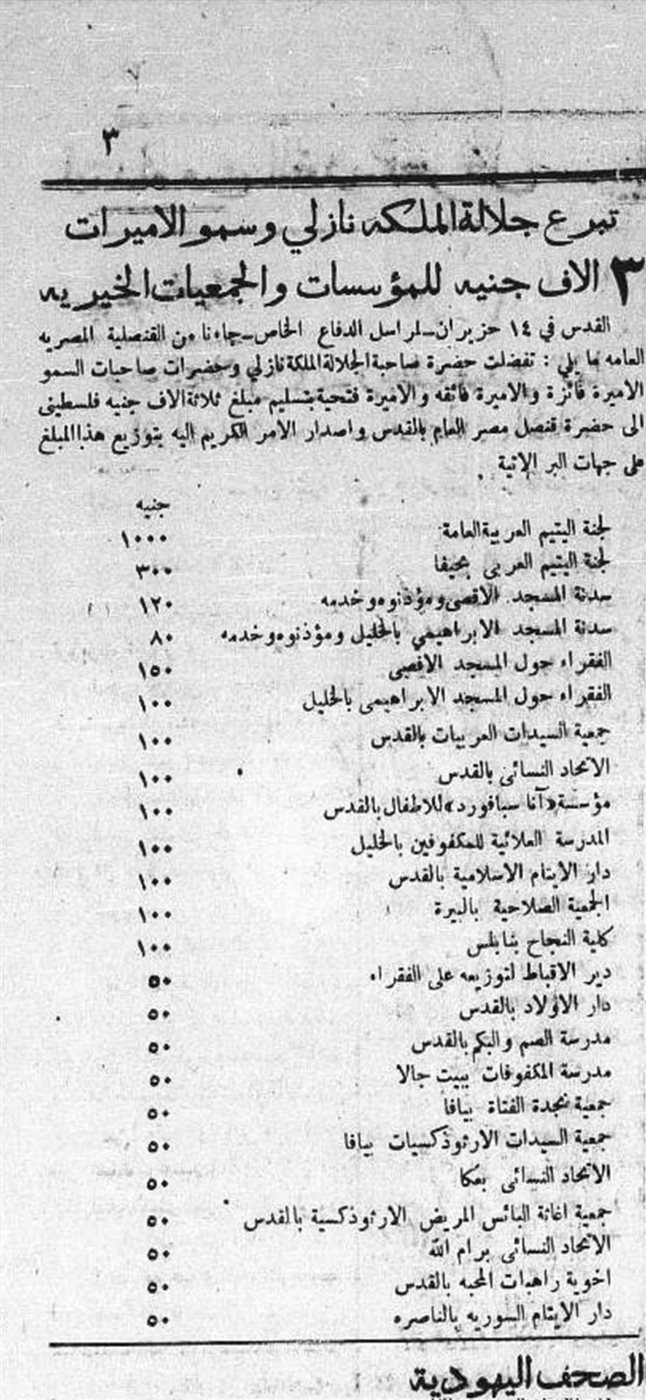 ٣
تبرع جلالة الملكه نازلي وسمو الاميرات
٣ الاف جنيه للمؤسسات والجمعيات الخيريه
القدس في ١٤ حزيران_لمراسل الدفاع الخاص_جاءنا من القنصلية المصريه
العامه ما يلي : تفضلت حضرة صاحبة الجلالة الملكة نازلي وحضرات صاحبات السمو
الاميرة فائزة والاميرة فائقه والاميرة فتحية بتسليم مبلغ ثلاثة الاف جنيه فلسطيني
الى حضرة قنصل مصر العام بالقدس واصدار الامر الكريم اليه بتوزيع هذا المبلغ
على جهات البر الاتية
جنيه
لجنة اليتيم العربية العامة ١٠٠٠
لجنة اليتيم العربي بحيفا ٣٠٠
سدنة المسجد الاقصى ومؤذنوه وخدمه ١٢٠
سدنة المسجد الابراهيمي بالخليل ومؤذنوه وخدمه ٨٠
الفقراء حول المسجد الاقصى ١٥٠
الفقراء حول المسجد الابراهيمي بالخليل ١٠٠
جمعية السيدات العربيات بالقدس ١٠٠
الاتحاد النسائي بالقدس ١٠٠
مؤسسة «آنا سبافورد» للاطفال بالقدس ١٠٠
المدرسة العلائية للمكفوفين بالخليل ١٠٠
دار الايتام الاسلامية بالقدس ١٠٠
الجمعية الصلاحية بالبيرة ١٠٠
كلية النجاح بنابلس ١٠٠
دير الاقباط لتوزيعه على الفقراء ٥٠
دار الاولاد بالقدس ٥٠
مدرسة الصم والبكم بالقدس ٥٠
مدرسة المكفوفات ببيت جالا ٥٠
جمعية نجدة الفتاة بيافا ٥٠
جمعية السيدات الارثوذكسيات بيافا ٥٠
الاتحاد النسائي بعكا ٥٠
جمعية اغاثة البائس المريض الارثوذكسية بالقدس ٥٠
الاتحاد النسائي برام الله ٥٠
اخوية راهبات المحبه بالقدس ٥٠
دار الايتام السوريه بالناصره ٥٠
الصحف اليهودية